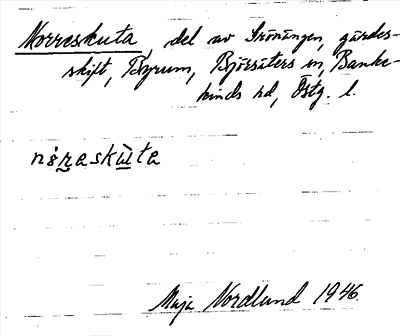 Norreskuta, del av Gröningen, gärdes-
skift, Byrum, Björsäters sn, Banke-
kinds hd, Östg. l.
nòr̰askùta
Maja Nordlund 1946.